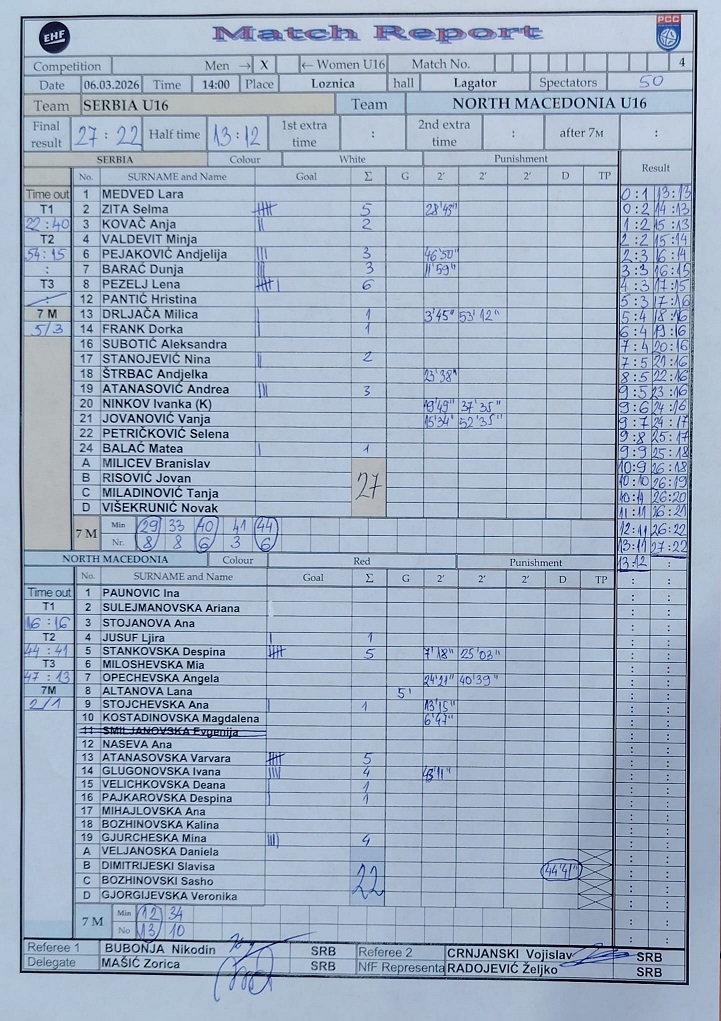 EHF
Match Report
PCC
Competition Men → X ← Women U16 Match No. 4
Date 06.03.2026 Time 14:00 Place Loznica hall Lagator Spectators 50
Team SERBIA U16 Team NORTH MACEDONIA U16
Final result 27 : 22 Half time 13 : 12 1st extra time : 2nd extra time : after 7M :
SERBIA Colour White Punishment Result
No. SURNAME and Name Goal Σ G 2' 2' 2' D TP
Time out 1 MEDVED Lara 0:1 13:13
T1 2 ZITA Selma 5 28'45" 0:2 14:13
22:40 3 KOVAČ Anja 2 1:2 15:13
T2 4 VALDEVIT Minja 2:2 15:14
54:15 6 PEJAKOVIĆ Andjelija 3 46'50" 2:3 16:14
: 7 BARAĆ Dunja 3 11'59" 3:3 16:15
T3 8 PEZELJ Lena 6 4:3 17:15
: 12 PANTIĆ Hristina 5:3 17:16
7 M 13 DRLJAČA Milica 1 3'45" 53'12" 5:4 18:16
5/3 14 FRANK Dorka 1 6:4 19:16
16 SUBOTIĆ Aleksandra 7:4 20:16
17 STANOJEVIĆ Nina 2 7:5 21:16
18 ŠTRBAC Andjelka 23'38" 8:5 22:16
19 ATANASOVIĆ Andrea 3 9:5 23:16
20 NINKOV Ivanka (K) 19'49" 37'35" 9:6 24:16
21 JOVANOVIĆ Vanja 15'34" 52'35" 9:7 24:17
22 PETRIČKOVIĆ Selena 9:8 25:17
24 BALAĆ Matea 1 9:9 25:18
A MILICEV Branislav 10:9 26:18
B RISOVIĆ Jovan 27 10:10 26:19
C MILADINOVIĆ Tanja 26:20
D VIŠEKRUNIĆ Novak 11:11 26:21
7 M Min 29 33 40 41 44 12:11 26:22
Nr. 8 8 6 3 6 13:11 27:22
NORTH MACEDONIA Colour Red Punishment 13:12 :
No. SURNAME and Name Goal Σ G 2' 2' 2' D TP
Time out 1 PAUNOVIC Ina
T1 2 SULEJMANOVSKA Ariana
16:16 3 STOJANOVA Ana
T2 4 JUSUF Ljira 1
44:41 5 STANKOVSKA Despina 5 7'18" 25'03"
T3 6 MILOSHEVSKA Mia
47:13 7 OPECHEVSKA Angela 24'21" 40'39"
7M 8 ALTANOVA Lana 5'
2/1 9 STOJCHEVSKA Ana 1 13'15"
10 KOSTADINOVSKA Magdalena 6'47"
11 SMILJANOVSKA Evgenija
12 NASEVA Ana
13 ATANASOVSKA Varvara 5
14 GLUGONOVSKA Ivana 4 43'11"
15 VELICHKOVSKA Deana 1
16 PAJKAROVSKA Despina 1
17 MIHAJLOVSKA Ana
18 BOZHINOVSKA Kalina
19 GJURCHESKA Mina 4
A VELJANOSKA Daniela
B DIMITRIJESKI Slavisa 44'41"
C BOZHINOVSKI Sasho 22
D GJORGIJEVSKA Veronika
7 M Min 12 34
No 13 10
Referee 1 BUBONJA Nikodin SRB Referee 2 CRNJANSKI Vojislav SRB
Delegate MAŠIĆ Zorica SRB NfF Representa RADOJEVIĆ Željko SRB